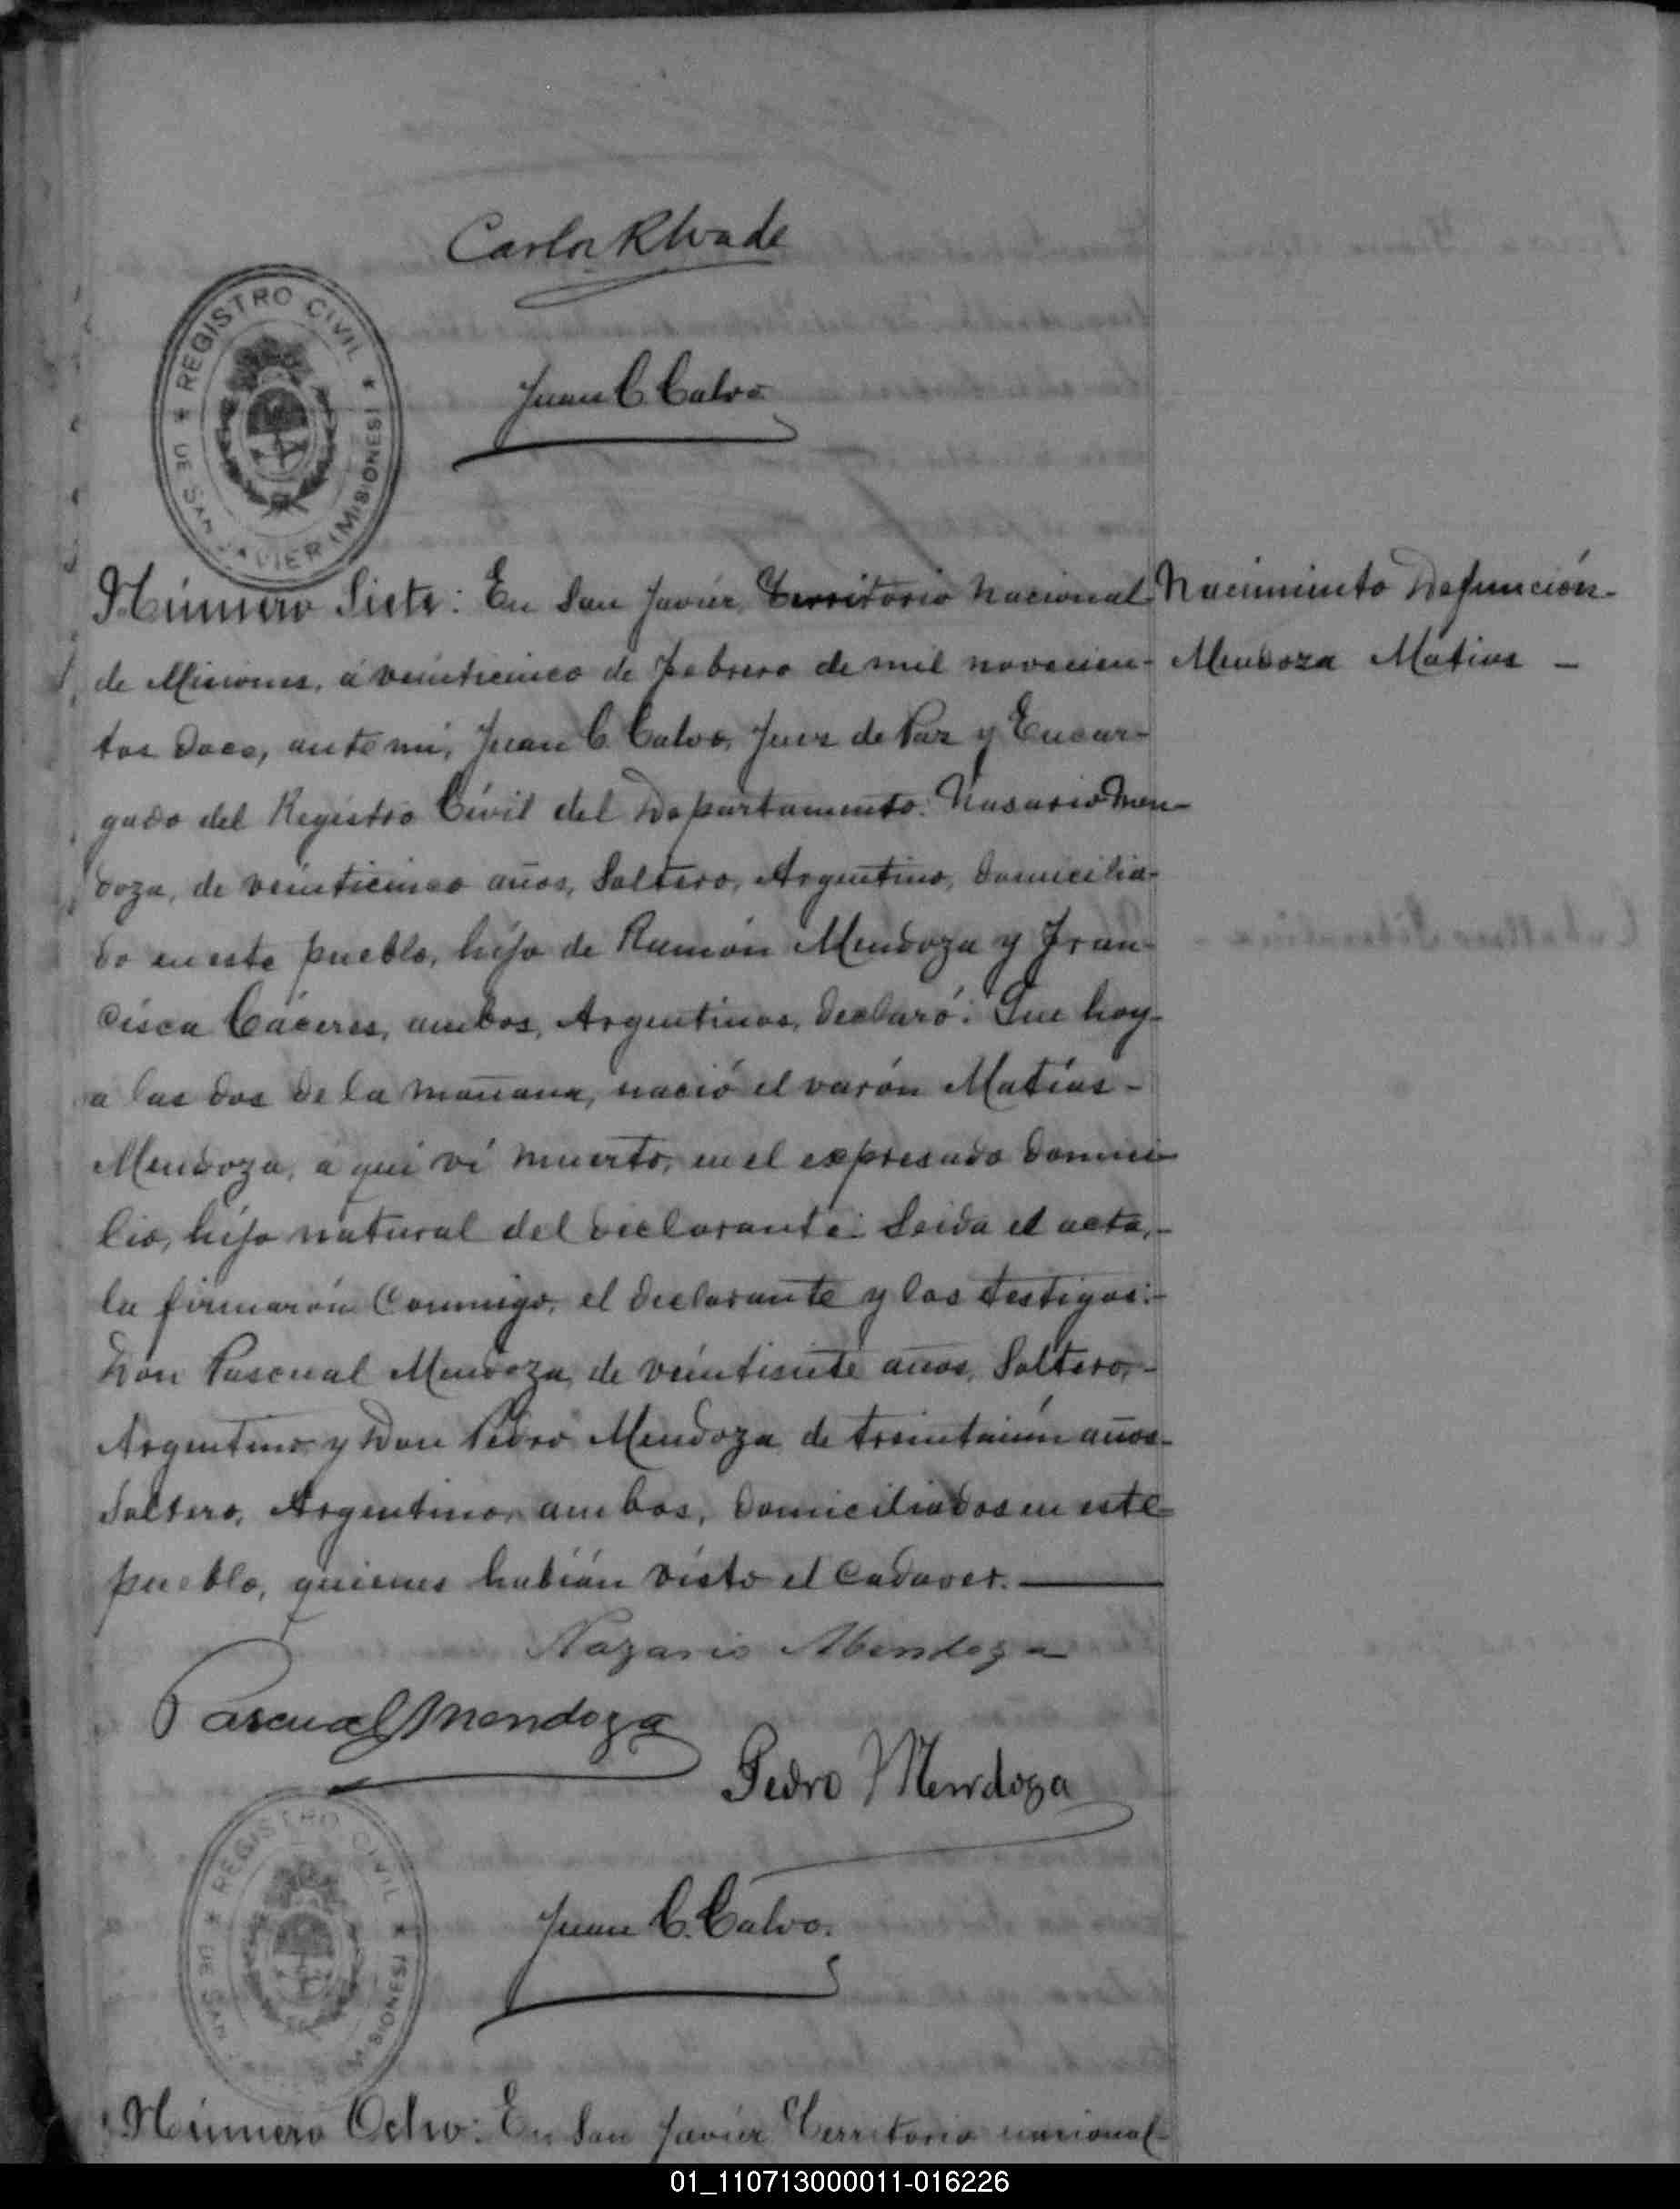 Carlos R Wade
REGISTRO CIVIL
DE SAN JAVIER (MISIONES)
Juan C. Calvo
Número Siete: En San Javier, Territorio Nacional
Nacimiento Defunción-
de Misiones, á veinticinco de Febrero de mil novecien-
Mendoza Matías -
tos doce, ante mí, Juan C. Calvo, Juez de Paz y Encar-
gado del Registro Civil del Departamento: Nasario Men-
doza, de veinticinco años, Soltero, Argentino, domicilia-
do en este pueblo, hijo de Ramón Mendoza y Fran-
cisca Cáceres, ambos, Argentinos, declaró: Que hoy-
a las dos de la mañana, nació el varón Matías -
Mendoza, á qui ví muerto, en el expresado domici-
lio, hijo natural del declarante: Leida el acta,-
la firmarón Conmigo, el declarante y los testigos:-
Don Pascual Mendoza, de veintisiete años, Soltero,-
Argentino y Don Pedro Mendoza de treintaiún años-
Soltero, Argentino, ambos, domiciliados en este-
pueblo, quienes habián visto el Cadaver.
Nazario Mendoza
Pascual Mendoza
Pedro Mendoza
REGISTRO CIVIL
DE SAN MISIONES)
Juan C. Calvo.
Número Ocho: En San Javier Territorio nacional-
01_110713000011-016226